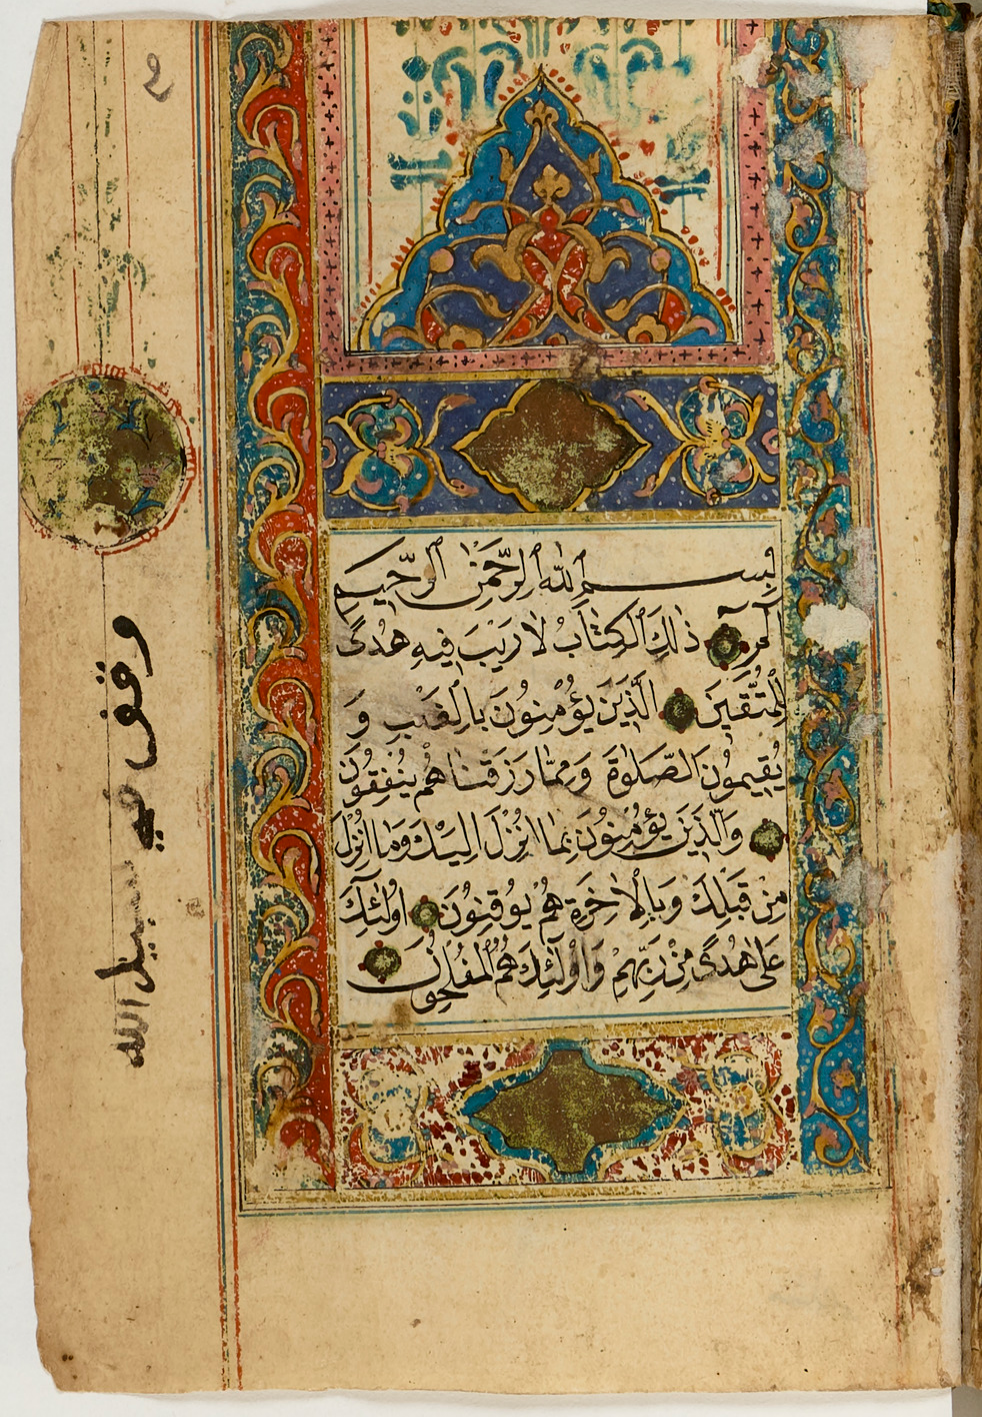 بِسْمِ ٱللّٰهِ ٱلرَّحْمٰنِ ٱلرَّحِيمِ
الٓمٓ ذٰلِكَ ٱلْكِتَابُ لَا رَيْبَ فِيهِ هُدًى
لِلْمُتَّقِينَ الَّذِينَ يُؤْمِنُونَ بِالْغَيْبِ وَ
يُقِيمُونَ الصَّلٰوةَ وَمِمَّا رَزَقْنَاهُمْ يُنْفِقُونَ
وَالَّذِينَ يُؤْمِنُونَ بِمَا اُنْزِلَ اِلَيْكَ وَمَا اُنْزِلَ
مِنْ قَبْلِكَ وَبِالْاٰخِرَةِ هُمْ يُوقِنُونَ اُولٰٓئِكَ
عَلٰى هُدًى مِنْ رَبِّهِمْ وَاُولٰٓئِكَ هُمُ الْمُفْلِحُونَ
وقف في سبيل الله